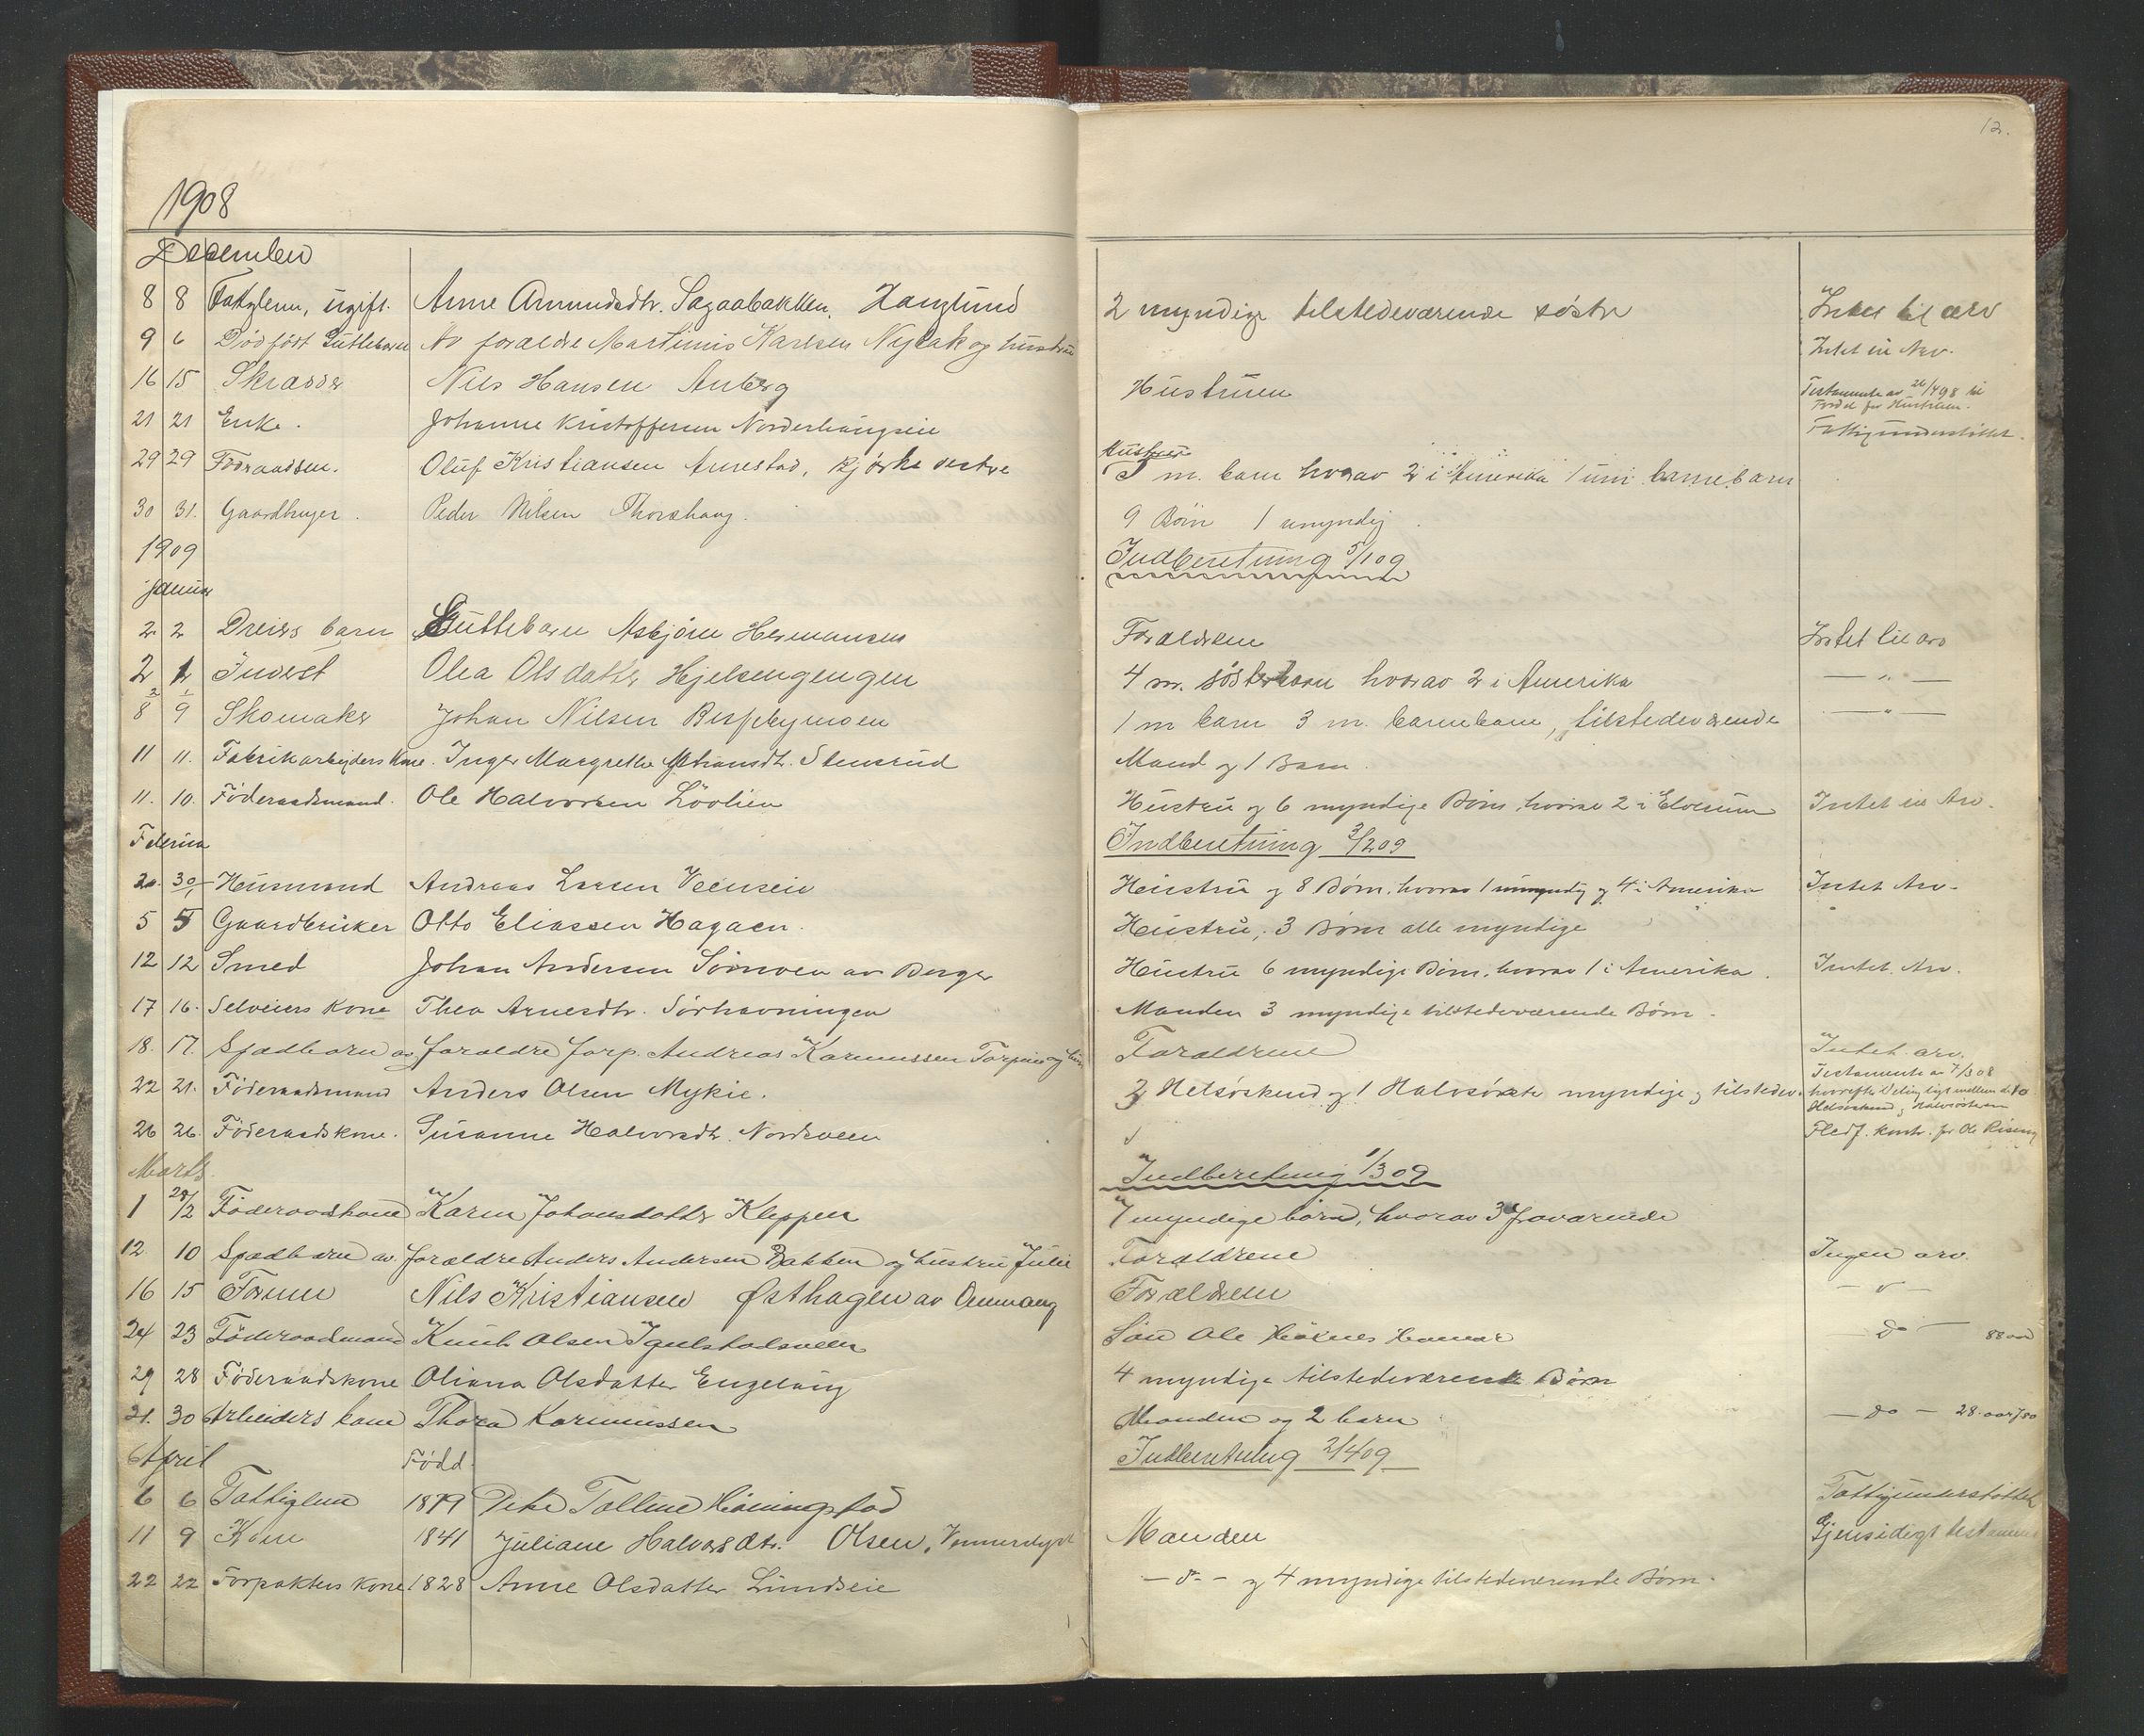 12.
1908
December
8 8 Fattiglem, ugift. Anne Amundsdtr. Sagaabakken, Hauglund 2 myndige tilstedeværende søstre Intet til arv
9 6 Dødfødt Guttebarn Av forældre Martinius Karlsen Nysak og hustru Intet til Arv.
16 15 Skrædder Nils Hansen Arberg Hustruen Testamente av 26/4 98 til
Fordel for Hustruen.
21 21 Enke. Johanne Kristoffersen Norderhaugseie Fattigunderstøttet.
29 29 Föraadsm. Oluf Kristiansen Arnestad, Kjørke vestre Hustrue
5 m. barn hvorav 2 i Amerika 1 um. barnebarn
30 31. Gaardbruger. Peder Nilsen Thorshaug. 9 Börn 1 umyndig
1909 Indberetning 5/1 09
januar
2. 2 Dreiers barn Guttebarn Asbjörn Hermansen Forældrene Intet til arv
2 1 Inderst Olea Olsdatter Hjelsengengen 4 m. søsterbarn hvorav 2 i Amerika — " —
8 9 Skomaker Johan Nilsen Bispebymoen 1 m barn 3 m. barnebarn, tilstedeværende — " —
11 11. Fabrikarbeiders Kone. Inger Margrethe Stensrud Mand og 1 Barn.
11. 10. Föderaadsmand. Ole Halvorsen Lövlien Hustru og 6 myndige Börn, hvorav 2 i Elverum Intet til Arv.
Februar Indberetning 3/2 09
30/1 Husmand Andreas Larsen Veenseie Hustru og 8 Börn, hvorav 1 umyndig og 4 i Amerika Intet Arv.
5 5 Gaardbruker Otto Eliassen Hagaen. Hustru, 3 Börn alle myndige "
12 12 Smed Johan Andersen Sörnoen av Berger Hustru 6 myndige Börn, hvorav 1 i Amerika. Intet Arv.
17 16. Selveiers Kone Thea Arnesdtr. Sörhavningen Manden 3 myndige tilstedeværende Börn.
18. 17. Spædbarn av forældre forp. Andreas Karinussen Torpeie og Forældrene Intet arv.
22 21. Föderaadsmand Anders Olsen Mykie. 2 Helsøskend og 1 Halvsøster myndige og tilstedev. Testamente av 7/3 08
hvorefter Deling ligt mellem de to
Helsøskend og Halvsösteren
26 26. Föderaadskone. Susanne Halvorsdtr. Nordveen Fledf. kontr. for Ole Kiseng
Marts Indberetning 1/3 09
1 28/2 Föderaadskone Karen Johansdatter Kleppen 7 myndige børn, hvorav 3 fraværende
12. 10 Spædbarn av forældre Anders Andersen Bakken og hustru Julie Forældrene Ingen arv.
16 15 Former Nils Kristiansen Østhagen av Ommang Forældrene — " —
24 23 Föderaadmand Knut Olsen Igelstadsveen Søn Ole Hamar — do — 88 aar
29 28 Föderaadskone Oliana Olsdatter Engelaug 4 myndige tilstedeværende Börn
31. 30 Arbeiders kone Thora Karinussen Manden og 2 barn — do — 28 aar
April Född. Indberetning 2/4 09
6 6 Fattiglem 1879 Petra Talline Höiningstad Fattigunderstøttet
11 9 Kone 1841 Juliane Halvorsdtr. Olsen, Manden Gjensidigt testamente
22 22 Forpakters Kone 1828 Anne Olsdatter Lundseie — do — og 4 myndige tilstedeværende Börn.